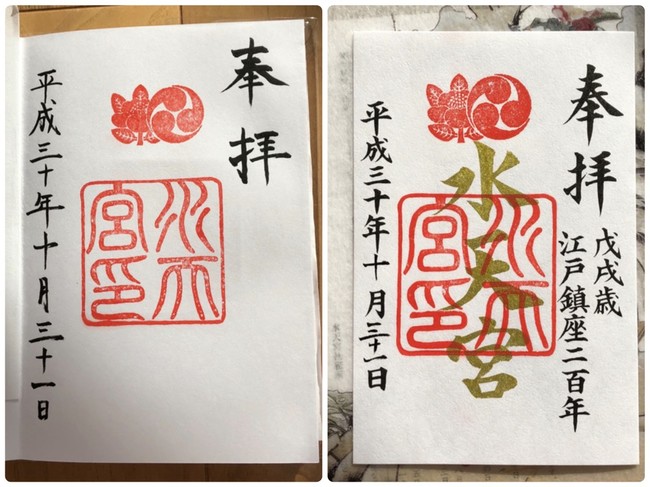 奉拝
水天宮印
平成三十年十月三十一日
奉拝
戊戌歳
江戸鎮座二百年
水天宮
水天宮印
平成三十年十月三十一日